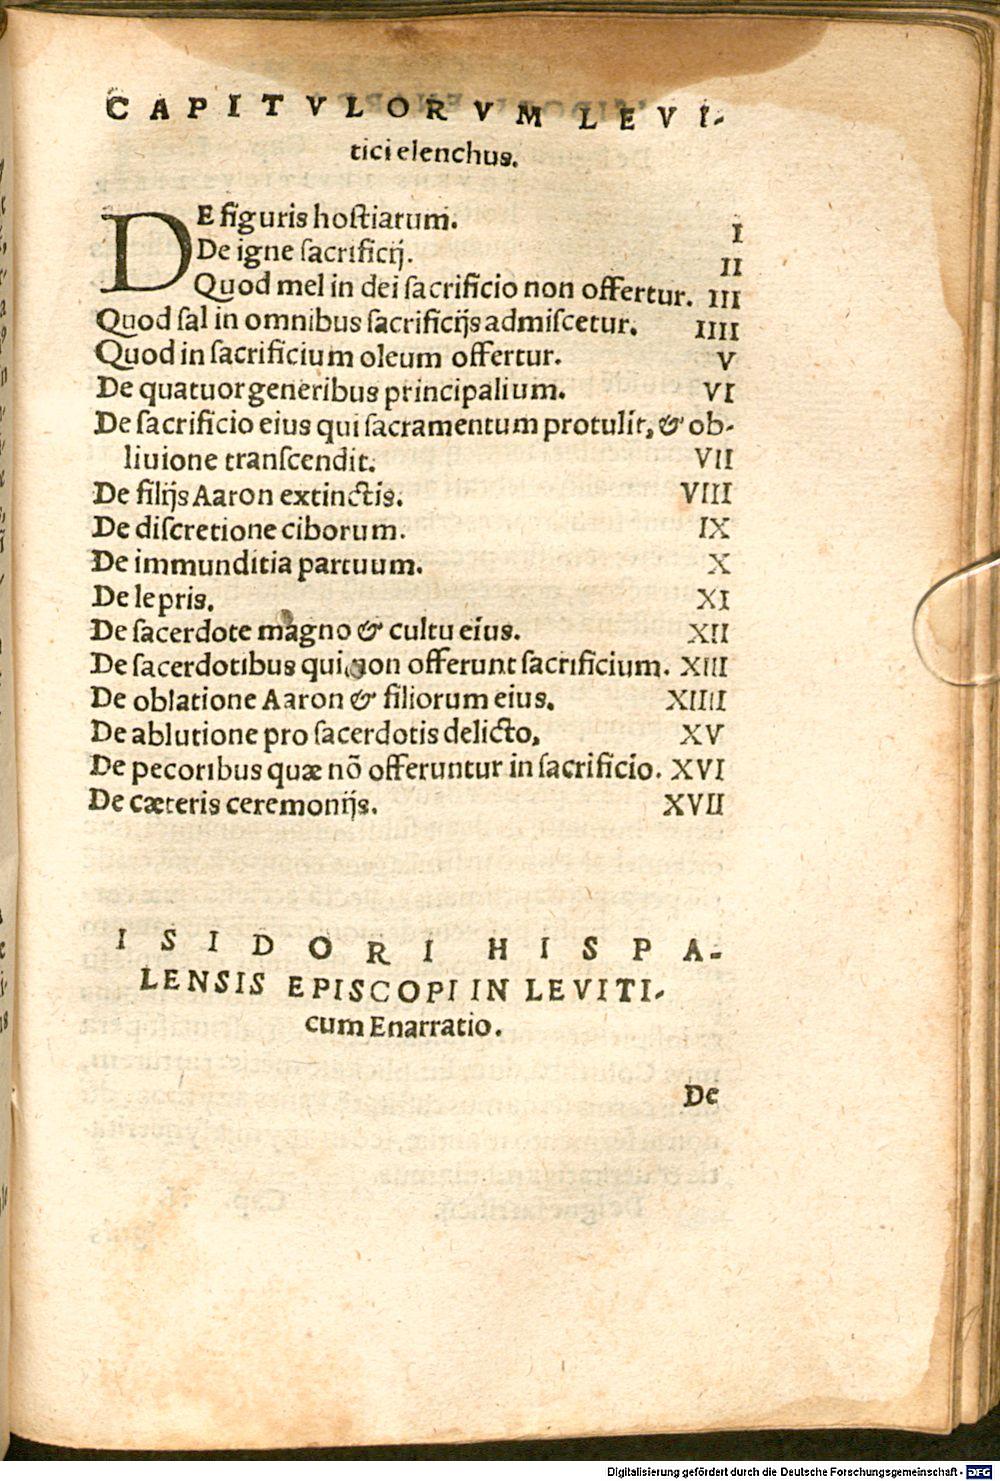 CAPITVLORVM LEVI-
tici elenchus.
DE figuris hostiarum. I
De igne sacrificij. II
Quod mel in dei sacrificio non offertur. III
Quod sal in omnibus sacrificijs admiscetur. IIII
Quod in sacrificium oleum offertur. V
De quatuor generibus principalium. VI
De sacrificio eius qui sacramentum protulit, & ob-
liuione transcendit. VII
De filijs Aaron extinctis. VIII
De discretione ciborum. IX
De immunditia partuum. X
De lepris. XI
De sacerdote magno & cultu eius. XII
De sacerdotibus qui non offerunt sacrificium. XIII
De oblatione Aaron & filiorum eius. XIIII
De ablutione pro sacerdotis delicto, XV
De pecoribus quæ nõ offeruntur in sacrificio. XVI
De cæteris ceremonijs. XVII
ISIDORI HISPA-
LENSIS EPISCOPI IN LEVITI-
cum Enarratio.
De
Digitalisierung gefördert durch die Deutsche Forschungsgemeinschaft - DFG